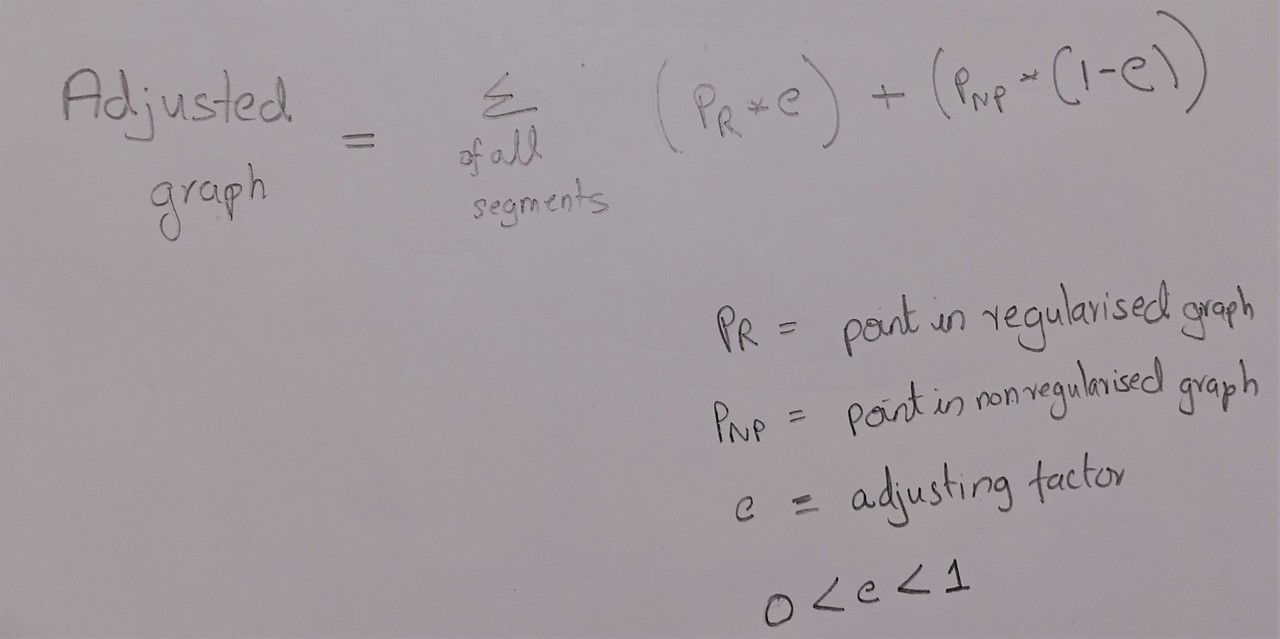 Adjusted graph = Σ of all segments (PR * e) + (PNP * (1-e))
PR = point in regularised graph
PNP = point in nonregularised graph
e = adjusting factor
0 < e < 1